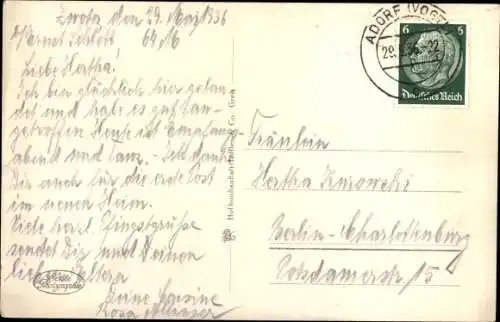 Zwota den 29. Mai 1936
b/Ernst Schlott 64 M
Liebe Hertha!
Ich bin glücklich hier gelan-
det und habe es gut an-
getroffen. Heute ist Empfangs-
abend und Tanz. Ich danke
Dir auch für die erste Post
im neuen Heim.
Viele herzl. Pfingstgrüße
sendet Dir und Deinen
lieben Eltern
Deine Cousine
Rosa
ADORF (VOGTL
29.
6 6
Deutsches Reich
Fräulein
Hertha Kurowski
Berlin-Charlottenburg
Potsdamerstr 15